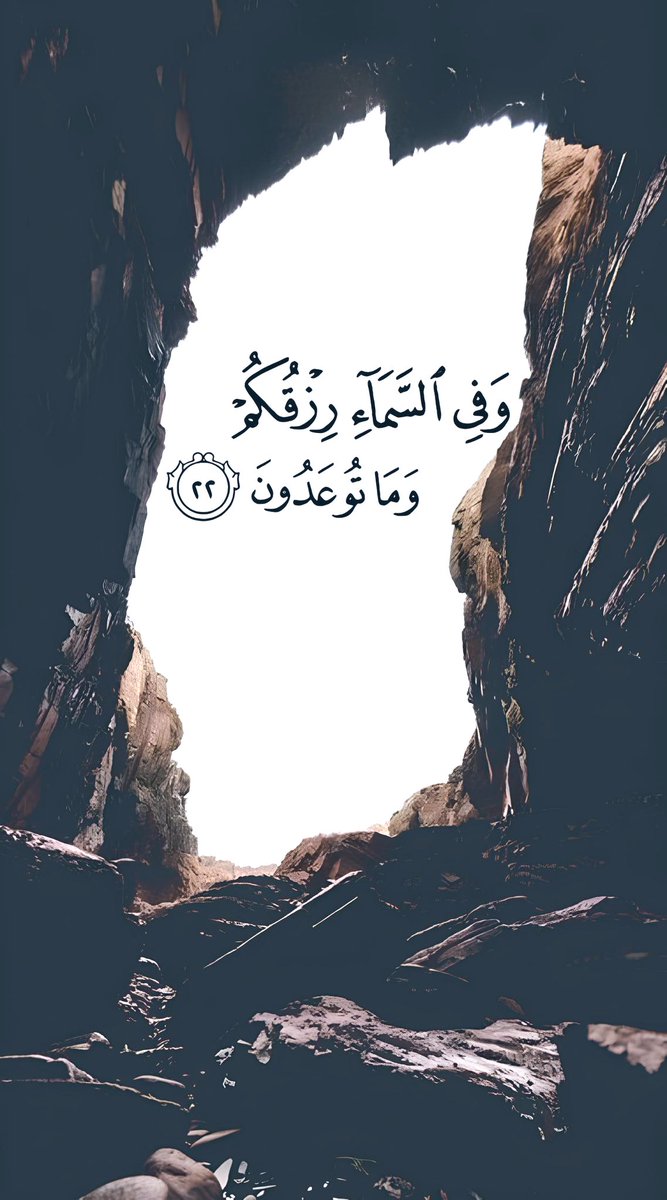 وَفِي ٱلسَّمَآءِ رِزۡقُكُمۡ
وَمَا تُوعَدُونَ ٢٢